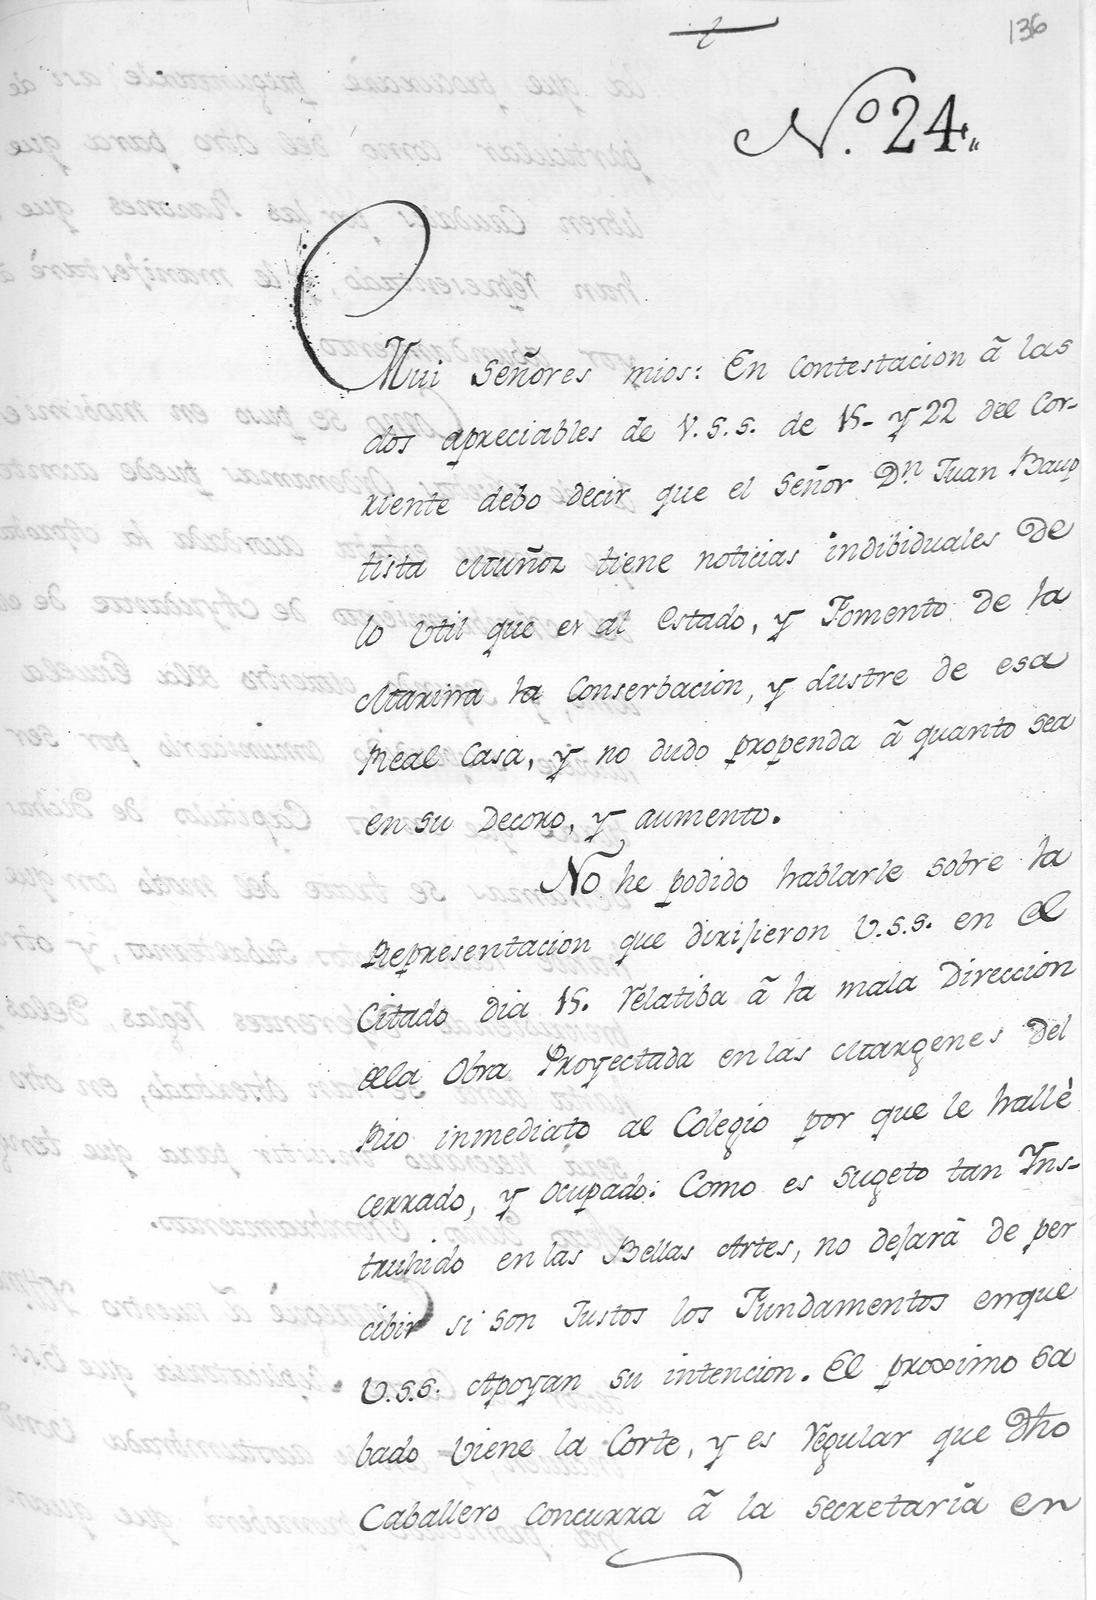 136
N.º 24.
Mui Señores mios: En Contestacion â las
dos apreciables de V.S.S. de 15- y 22 del Cor-
riente debo decir que el Señor Dn. Juan Baup
tista Muñoz tiene noticias indibiduales de
lo Util que es al Estado, y Fomento de la
Marina la Conserbacion, y lustre de esa
Real Casa, y no dudo propenda â quanto sea
en su Decoro, y aumento.
No he podido hablarle sobre la
Representacion que dirijieron V.S.S. en el
Citado dia 15. relatiba â la mala Direccion
dela Obra Proyectada en las Margenes del
Rio inmediato al Colegio por que le hallè
cerrado, y ocupado: Como es sugeto tan Yns-
truhido en las Bellas Artes, no dejarâ de per
cibir si son Justos los Fundamentos enque
V.S.S. Apoyan su intencion. El proximo Sa
bado Viene la Corte, y es regular que dho
Caballero Concurra â la Secretaria en